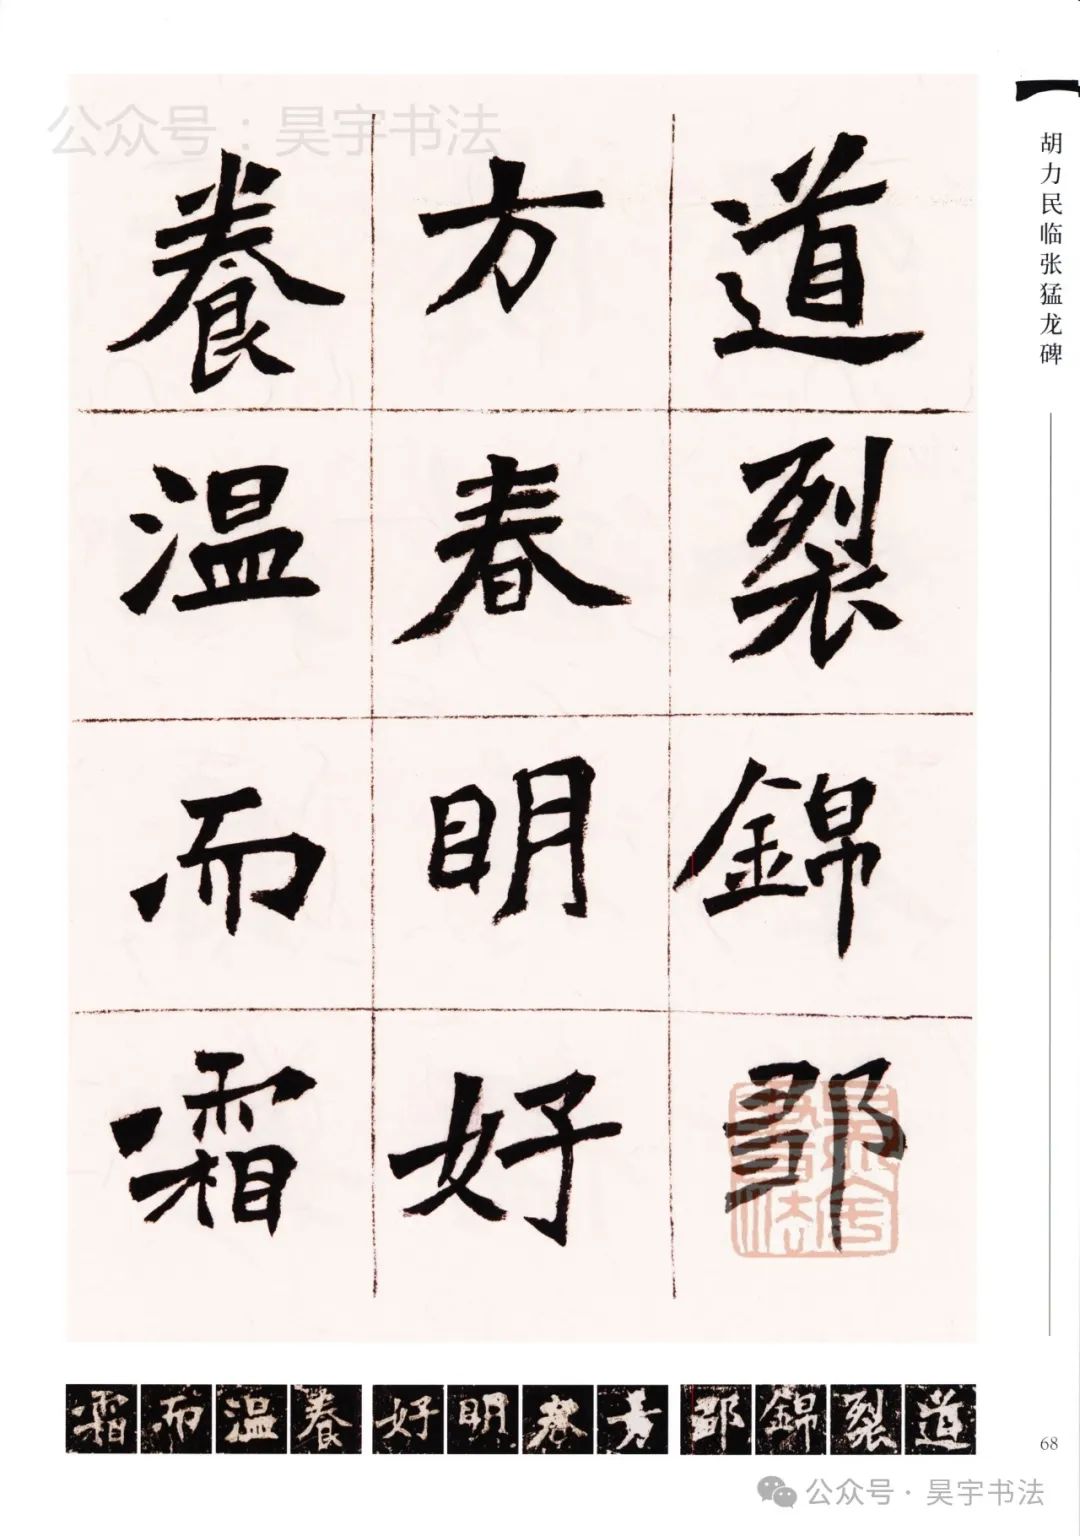 公众号：昊宇书法
胡力民临张猛龙碑
道裂錦
方春明好
養温而霜
霜而温養 好明春方 錦裂道
68
公众号·昊宇书法